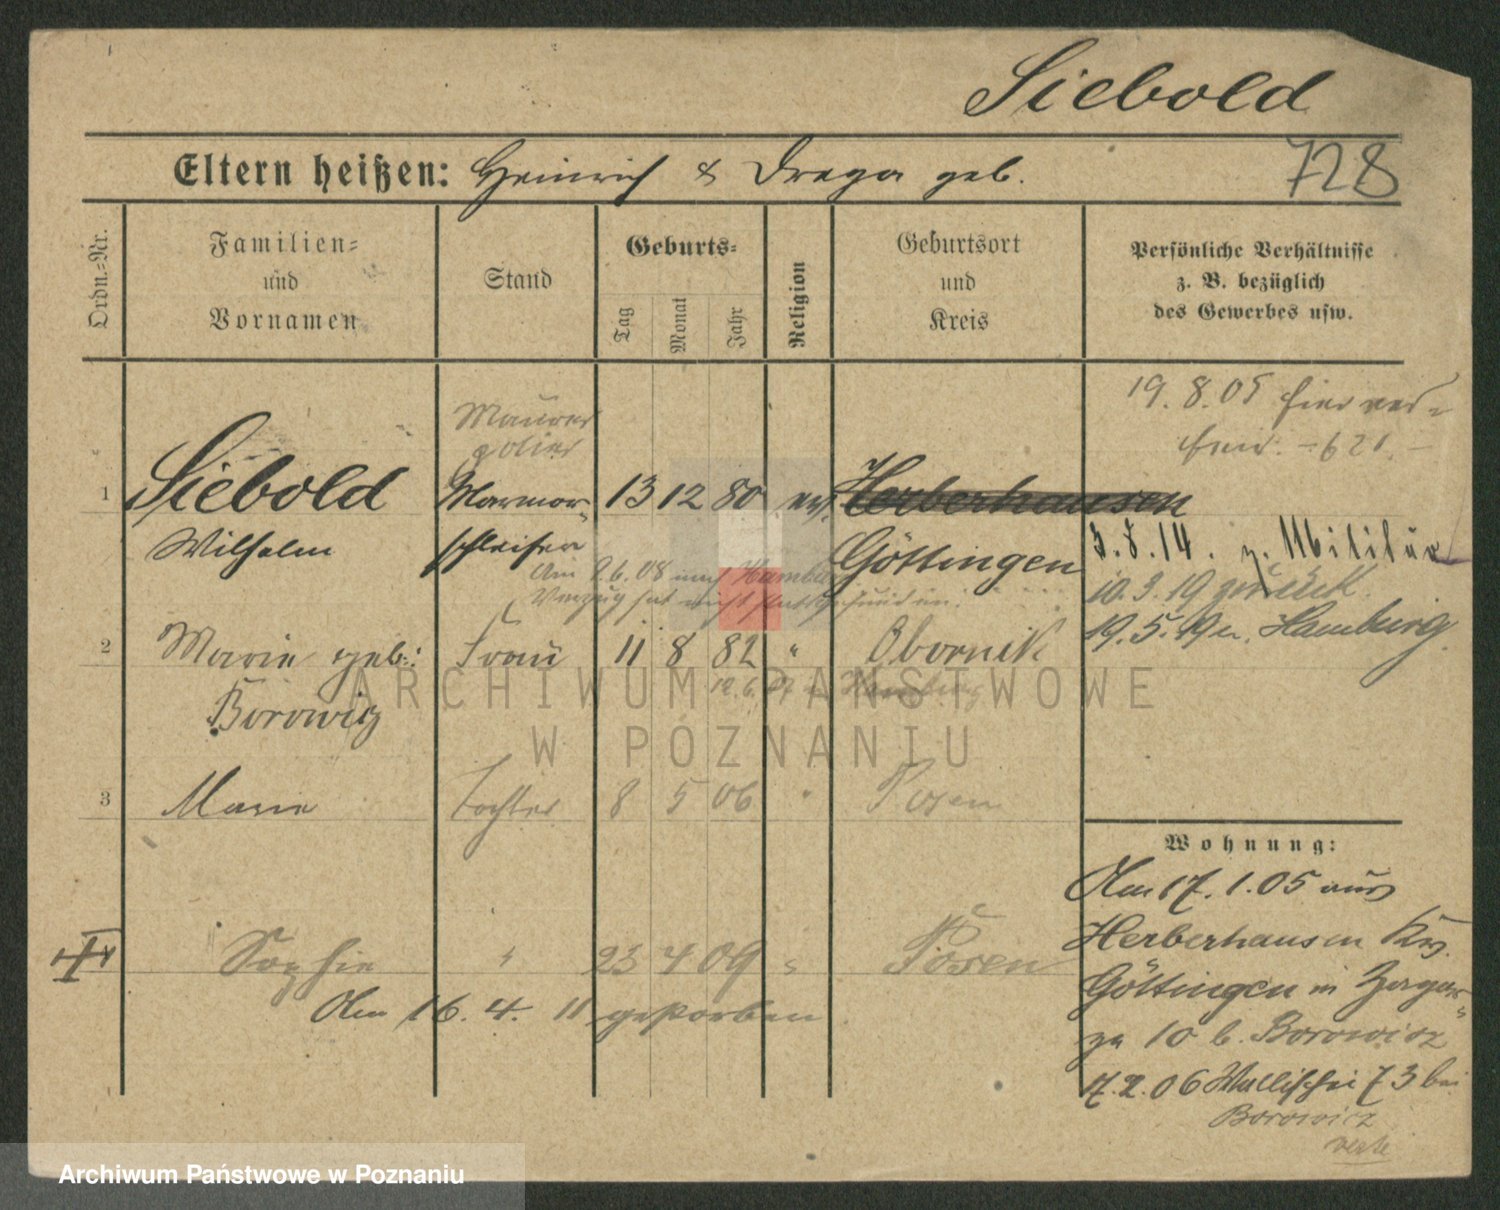 Siebold
728
Eltern heißen: Heinrich & Drega geb.
Ordn.-Nr.
Familien- und Vornamen
Stand
Geburts-
Tag
Monat
Jahr
Religion
Geburtsort und Kreis
Persönliche Verhältnisse
z. B. bezüglich
des Gewerbes usw.
19.8.05 hier ver-
- 621. -
Maurer
polier
1 Siebold Marmor- 13 12 80 ev. Herberhausen
Wilhelm schleifer Göttingen
3.8.14. z. Militär
Am 2.6.08 nach Hamburg
Verzug hat nicht stattgefunden.
10.3.19 zurück.
19.5.19 n. Hamburg
2 Marie geb: Frau 11 8 82 " Obornik
Borowicz
Hamburg
3 Marie Tochter 8 5 06 " Posen
Wohnung:
Am 17.1.05 aus
Herberhausen Krs.
Göttingen in
10 b. Borowicz
17.2.06 Wallischei 73 bei
Borowicz
Sophie " 23 4 09 " Posen
Am 16.4.11 gestorben
ARCHIWUM PAŃSTWOWE
W POZNANIU
Archiwum Państwowe w Poznaniu